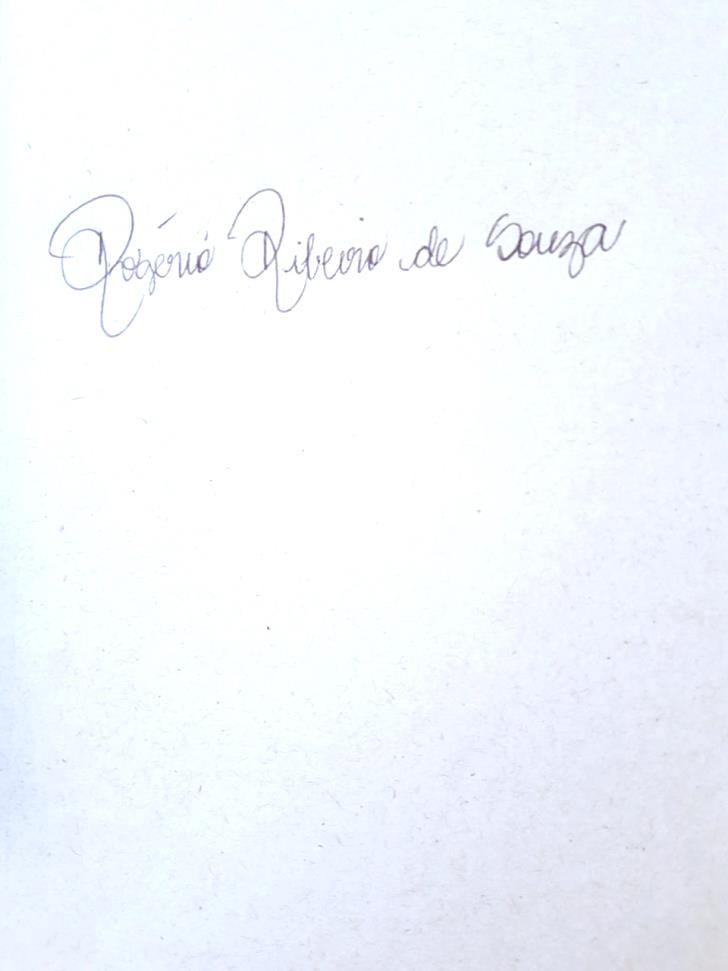 Rogério Ribeiro de Souza